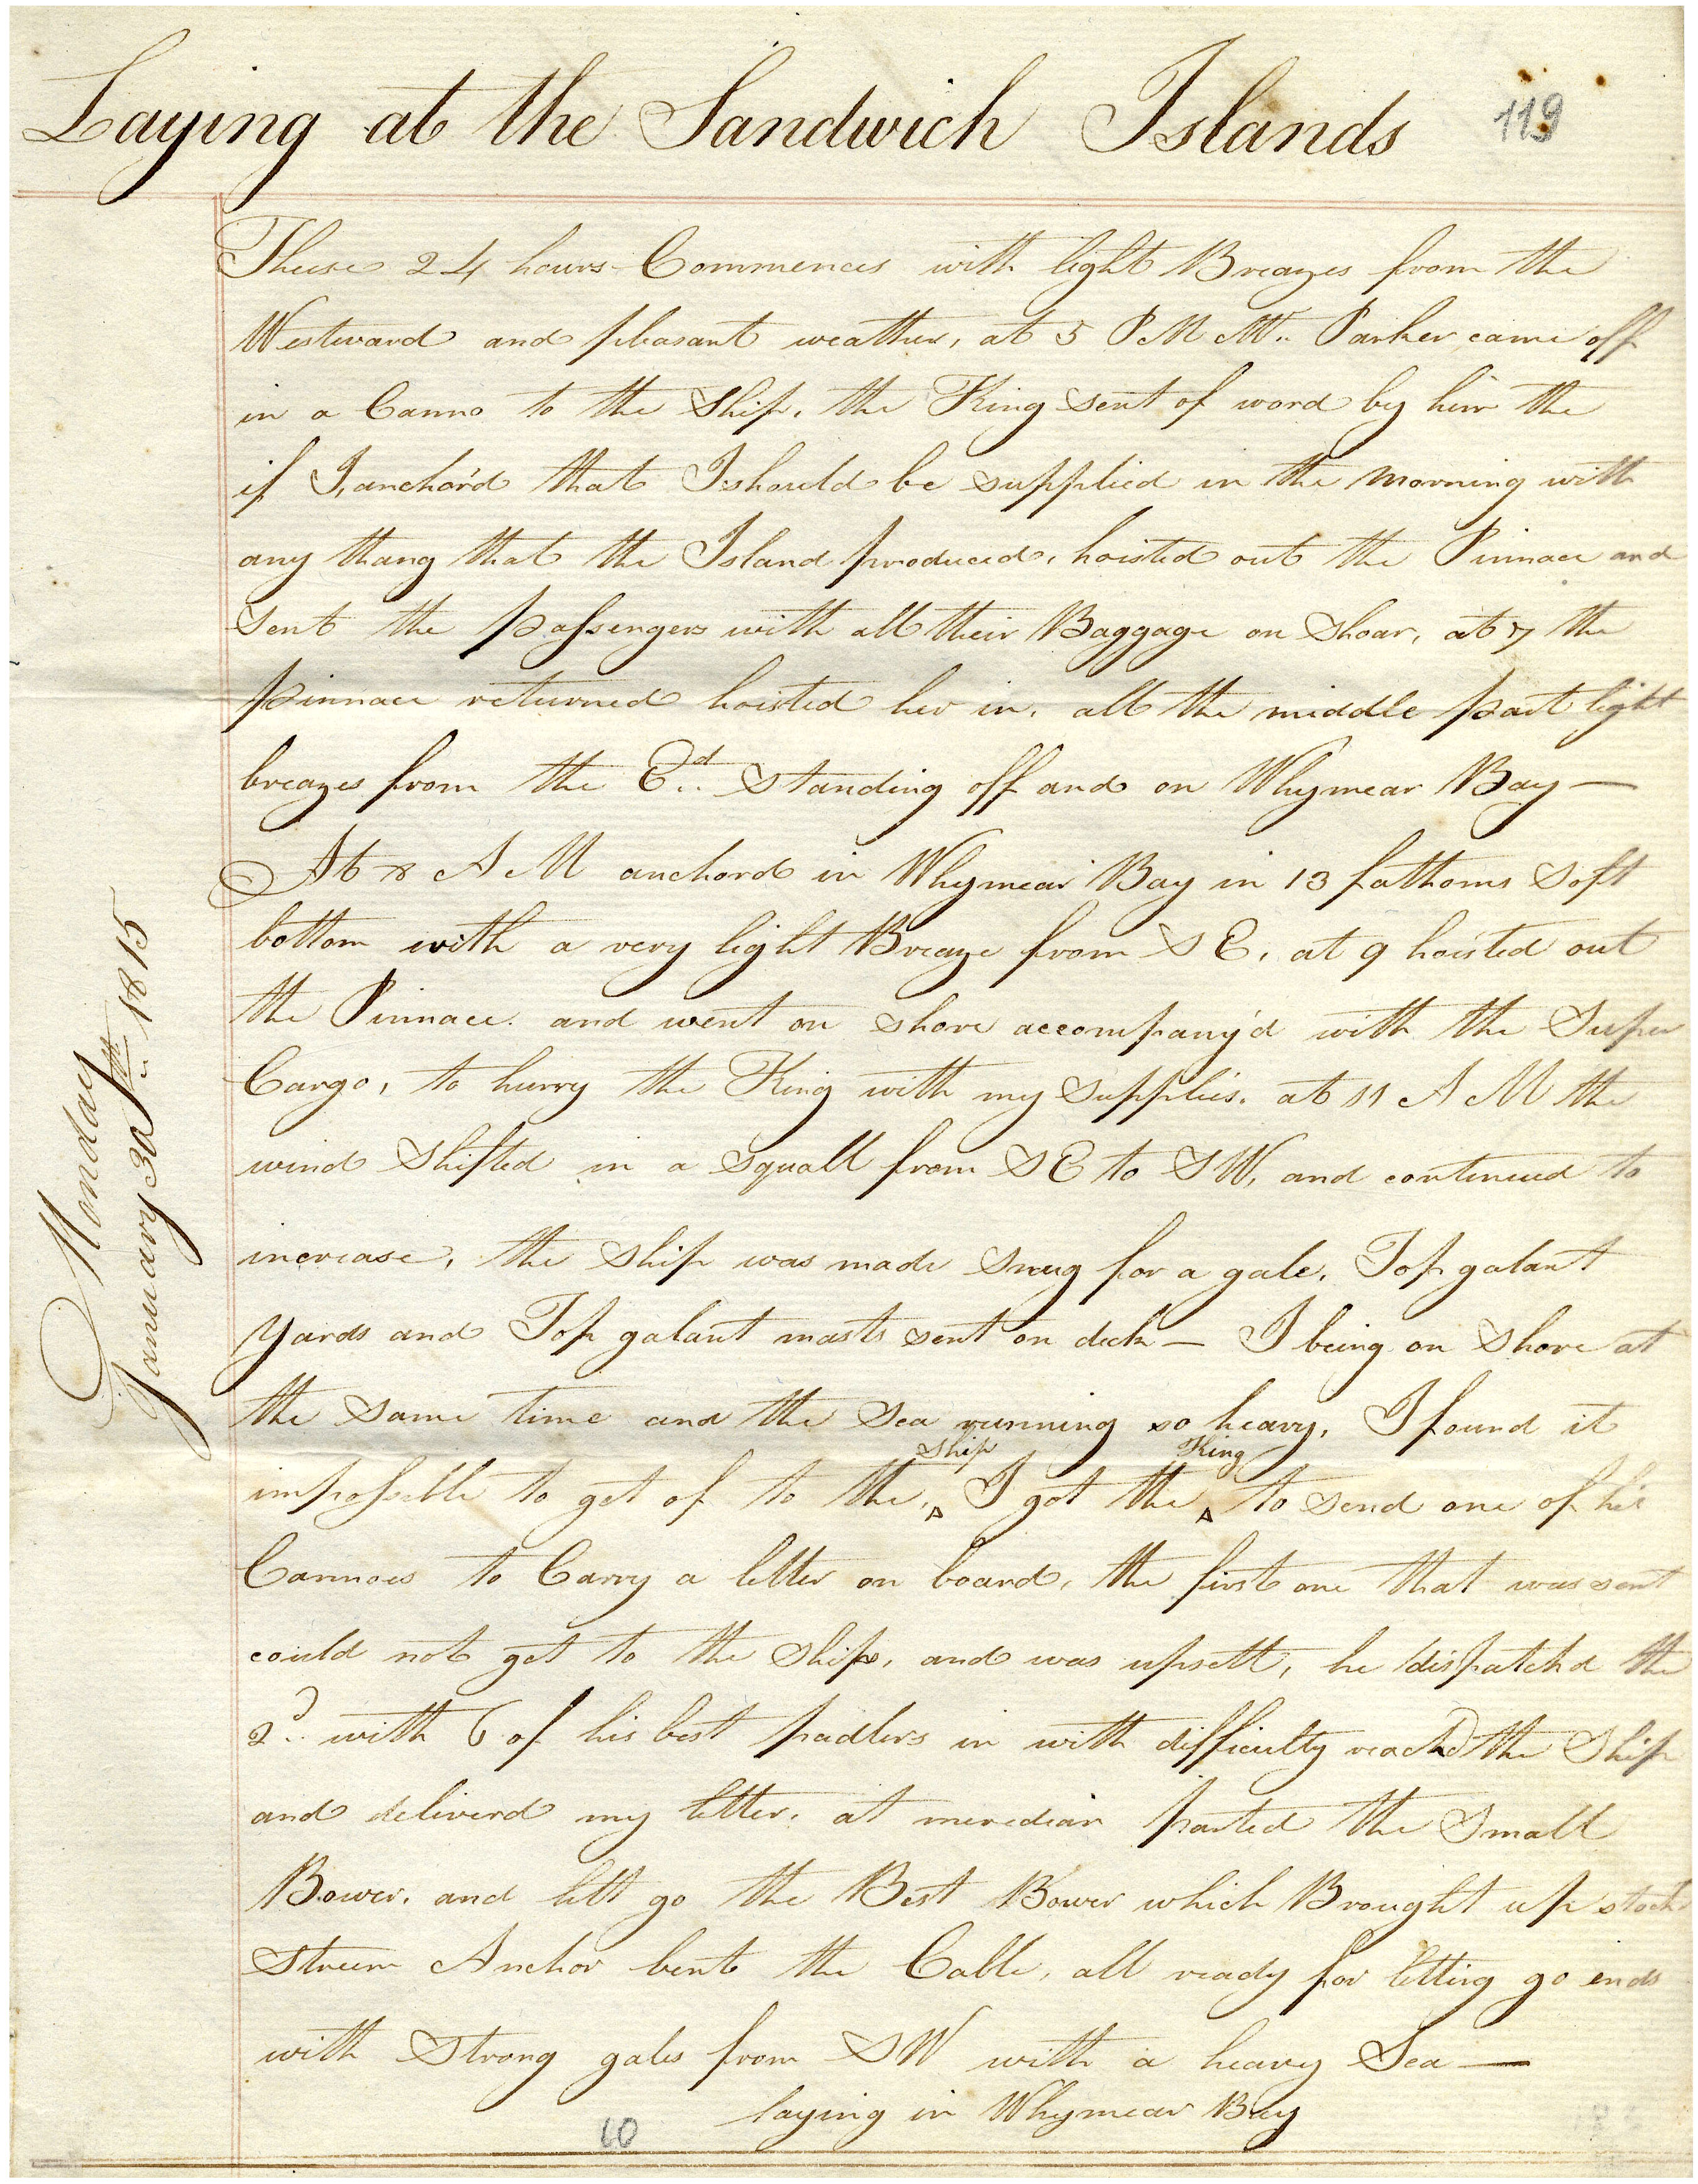 Laying at the Sandwich Islands 119
Theese 24 hours Commences with light Breazes from the
Westward and pleasant weather, at 5 PM Mr. Parker came off
in a Canno to the Ship, the King sent of word by him the
if I, anchor'd that I should be supplied in the morning with
any thang that the Island produced, hoisted out the Pinnace and
Sent the passengers with all their Baggage on Shoar, at 7 the
pinnace returned hoisted her in, all the middle part light
breazes from the Ed.. Standing off and on Whymear Bay —
At 8 AM anchord in Whymear Bay in 13 fathoms Soft
bottom with a very light Breaze from SE, at 9 hoisted out
the Pinnace. and went on shore accompany'd with the Super
Cargo, to hurry the King with my supplies. at 11 AM the
wind Shifted in a squall from SE to SW, and continued to
increase, the Ship was made Snug for a gale, Top galant
yards and Top galant masts sent on deck — I being on Shore at
the same time and the Sea running so heavy, I found it
impossible to get of to the, ^Ship I got the ^King to send one of his
Cannoes to Carry a letter on board, the first one that was sent
could not get to the Ship, and was upsett, he dispatchd the
2d.. with 6 of his best padlers in with difficulty reachd the Ship
and deliverd my letter, at meredian parted the Small
Bower, and lett go the Best Bower which Brought up stockd
Streem Anchor bent the Cable, all ready for letting go ends
with Strong gales from SW with a heavy Sea —
laying in Whymear Bay
60
Monday
January 30th.. 1815